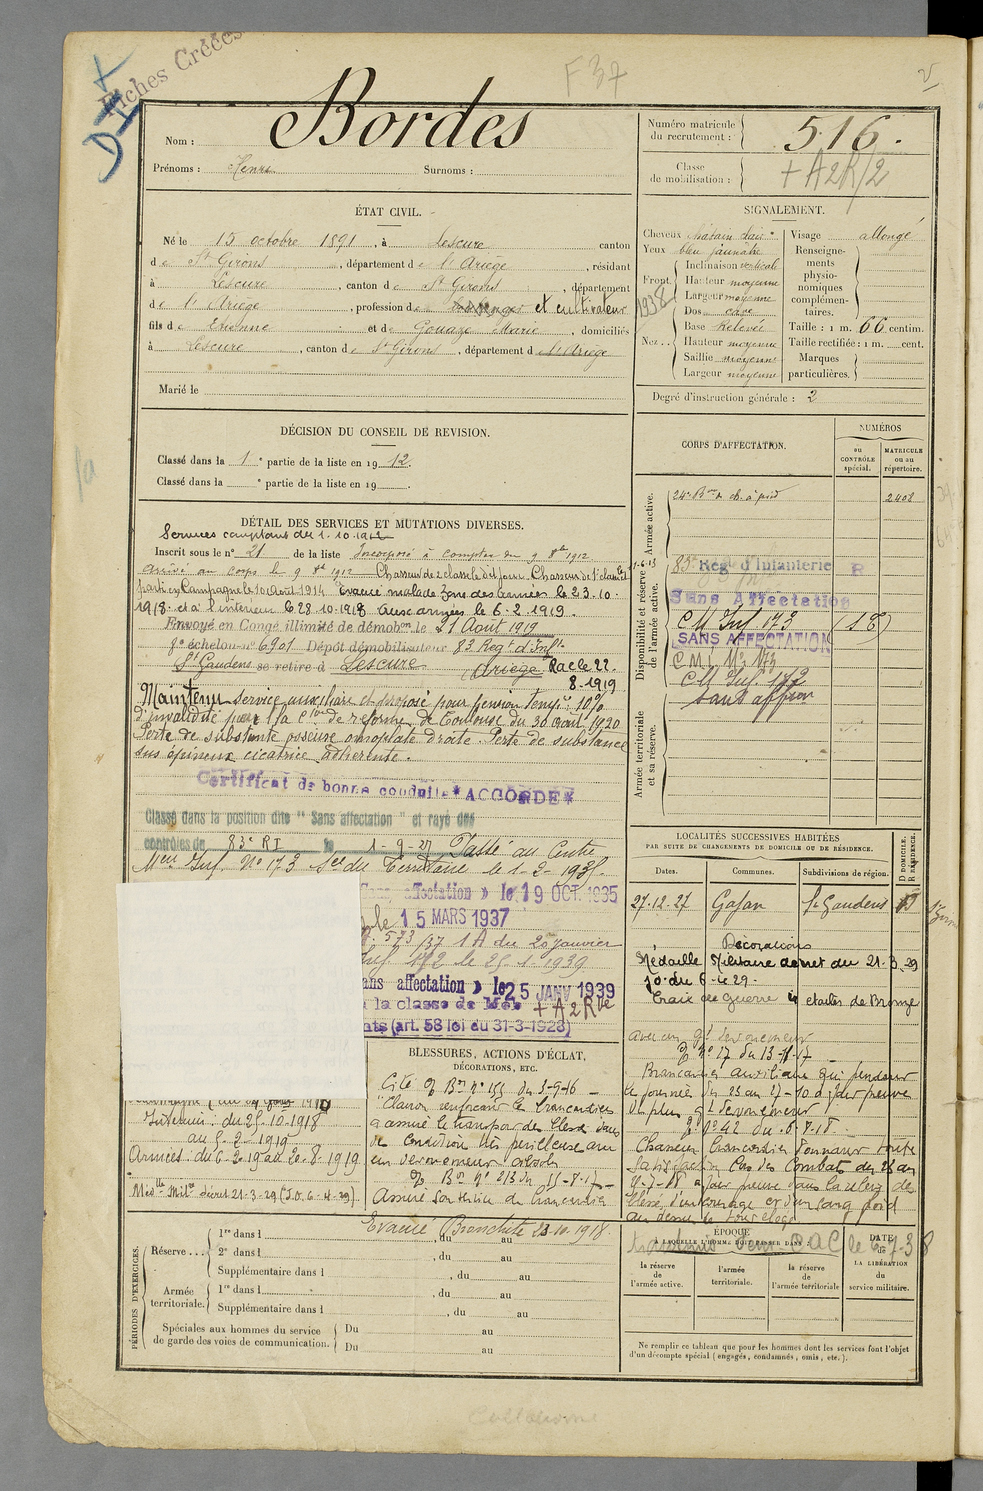 Fiches Créées
F 37
Nom : Bordes
Prénoms : Henri Surnoms :
Numéro matricule du recrutement : 516.
Classe de mobilisation : + A2R/2
ÉTAT CIVIL.
Né le 15 octobre 1891, à Lescure canton
de St Girons, département de l'Ariège, résidant
à Lescure, canton de St Girons, département
de l'Ariège, profession de et cultivateur
fils de Etienne et de Gouaze Marie, domiciliés
à Lescure, canton de St Girons, département d l'Ariège
Marié le
SIGNALEMENT.
Cheveux châtain clair
Yeux bleu jaunâtre
Front Inclinaison verticale
Hauteur moyenne
Largeur moyenne
1938
Nez Dos cave
Base Relevée
Hauteur moyenne
Saillie moyenne
Largeur moyenne
Visage allongé
Renseignements physionomiques complémentaires.
Taille : 1 m. 66 centim.
Taille rectifiée : 1 m. cent.
Marques particulières.
Degré d'instruction générale : 2
DÉCISION DU CONSEIL DE REVISION.
Classé dans la 1e partie de la liste en 1912.
Classé dans la e partie de la liste en 19 .
CORPS D'AFFECTATION.
NUMÉROS
au CONTRÔLE spécial.
MATRICULE ou au répertoire.
Armée active.
24e Bon de ch. à pied 2408
Disponibilité et réserve de l'armée active.
83e Rég. d'Infanterie R
Sans Affectation
CM Inf. 173 (18)
SANS AFFECTATION
C M I No 173
CM Inf. 172
Sans affon
Armée territoriale et sa réserve.
DÉTAIL DES SERVICES ET MUTATIONS DIVERSES.
Services comptant du 1.10.1912
Inscrit sous le no 21 de la liste Incorporé à compter du 9 8bre 1912
arrivé au corps le 9 8bre 1912 Chasseur de 2e classe le dit jour Chasseur de 1e classe le
parti en Campagne le 10 août 1914 Evacué malade Zone des armées le 23.10.
1918. et à l'intérieur le 28.10.1918 aux armées le 6.2.1919.
Envoyé en Congé illimité de démobon le 21 Août 1919
8e échelon no 6901 Dépôt démobilisateur 83 Régt d'Infie
St Gaudens se retire à Lescure Ariège Rac le 22.
8.1919
Maintenu service auxiliaire et proposé pour pension temp. 10%
d'invalidité par la Con de réforme de Toulouse du 30 avril 1920
Perte de substance osseuse omoplate droite. Perte de substance
sus épineux cicatrice adhérente.
Certificat de bonne conduite ACCORDÉ
Classé dans la position dite "Sans affectation" et rayé des
contrôles de 83e RI le 1-9-27 Passé au Centre
Mon Inf. No 173 du Territoire le 1-3-193
Sans affectation » le 19 OCT. 1935
le 15 MARS 1937
573/37 1A du 20 janvier
Inf. 172 le 25-1-1939
ans affectation » le 25 JANV 1939
à la classe de Mob + A2Rle
(art. 58 loi du 31-3-1928)
LOCALITÉS SUCCESSIVES HABITÉES
PAR SUITE DE CHANGEMENTS DE DOMICILE OU DE RÉSIDENCE.
Dates. Communes. Subdivisions de région. D DOMICILE. R RÉSIDENCE.
27-12-27 Gajan St Gaudens D
Décorations
Médaille Militaire décret du 21-3-29
Jo du 6-4-29.
Croix de Guerre étoiles de Bronze
avec un gd dévouement
O no 17 du 13-11-17
Brancardier auxiliaire qui pendant
les journées du 23 au 27-10 a fait preuve
du plus gd dévouement
O no 42 du 6-7-18
Chasseur brancardier donnant toute
satisfaction
BLESSURES, ACTIONS D'ÉCLAT,
DÉCORATIONS, ETC.
Cité O Bon no 155 du 3-9-16
"Clairon renforçant les brancardiers
a assuré le transport des blessés dans
des conditions très périlleuses avec
un dévouement absolu
O Bon no 213 du 15-8-17
Assure son service de brancardier
Intérieur : du 25.10.1918
au 5.2.1919
Armées : du 6.2.19 au 20.8.1919
Médlle Milre décret 21-3-29 (J.O. 6-4-29).
Evacué Bronchite 23.10.1918.
PÉRIODES D'EXERCICES.
Réserve ...
1re dans l , du au
2e dans l , du au
Supplémentaire dans l , du au
Armée territoriale.
1re dans l , du au
Supplémentaire dans l , du au
Spéciales aux hommes du service
de garde des voies de communication.
Du au
Du au
ÉPOQUE
À LAQUELLE L'HOMME DOIT PASSER DANS :
DATE de LA LIBÉRATION du service militaire.
la réserve de l'armée active.
l'armée territoriale.
la réserve de l'armée territoriale
Ne remplir ce tableau que pour les hommes dont les services font l'objet
d'un décompte spécial (engagés, condamnés, omis, etc.).